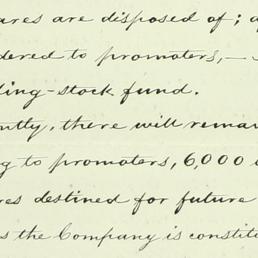 ares are disposed of; a
dered to promoters,—
ling-stock fund.
ntly, there will remai
g to promoters, 6,000
res destined for future
s the Company is constit